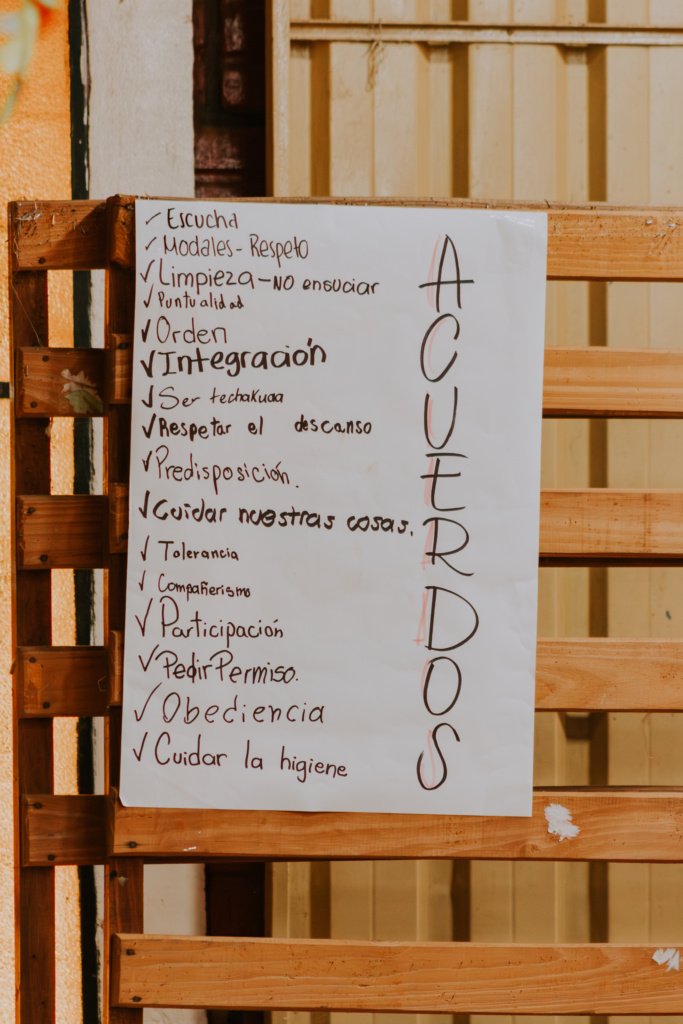 ✓ Escucha
✓ Modales - Respeto
✓ Limpieza - NO ensuciar
✓ Puntualidad
✓ Orden
✓ Integración
✓ Ser techakuaa
✓ Respetar el descanso
✓ Predisposición.
✓ Cuidar nuestras cosas.
✓ Tolerancia
✓ Compañerismo
✓ Participación
✓ Pedir Permiso.
✓ Obediencia
✓ Cuidar la higiene
ACUERDOS